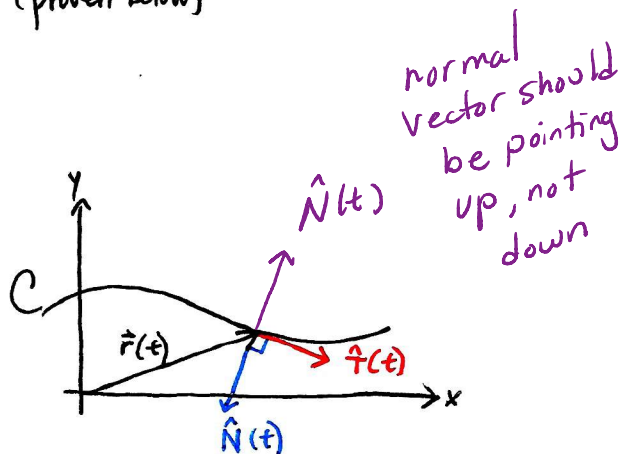 (proven below)
normal
vector should
be pointing
up, not
down
y
N̂(t)
C
r⃗(t)
T̂(t)
x
N̂(t)